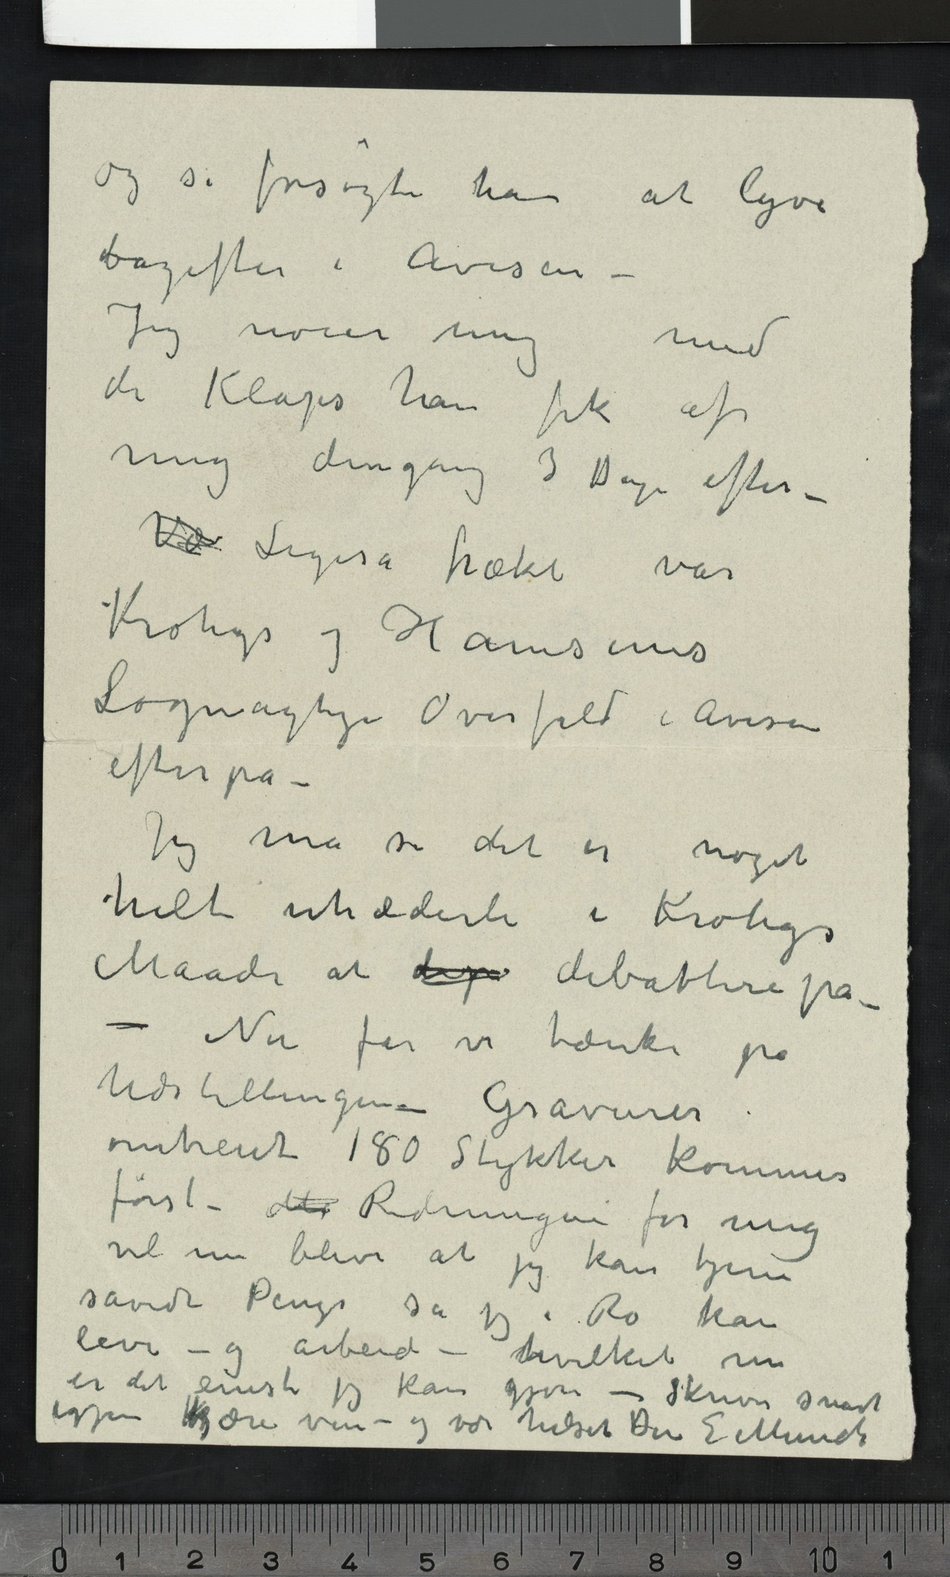 og så forsøgte han at lyve
bagefter i Avisen –
Jeg nøier mig med
de Klaps han fik af
mig dengang 3 Dage efter –
Ligeså frækt var
Krohgs og Hamsuns
Løgnagtige Overfald i Avisen
efterpå –
Jeg må si det er noget
helt uhæderli i Krohgs
Maade at debattere på –
– Nu får vi tænke på
Udstillingen – Gravurer
omtrent 180 Stykker kommer
først – Redningen for mig
vil nu blive at jeg kan tjene
såvidt Penge så jeg i Ro kan
leve – og arbeid – hvilket nu
er det eneste jeg kan gjøre – Skriv snart
igjen Kjære ven – og vær hilset Din E Munch
0 1 2 3 4 5 6 7 8 9 10 1